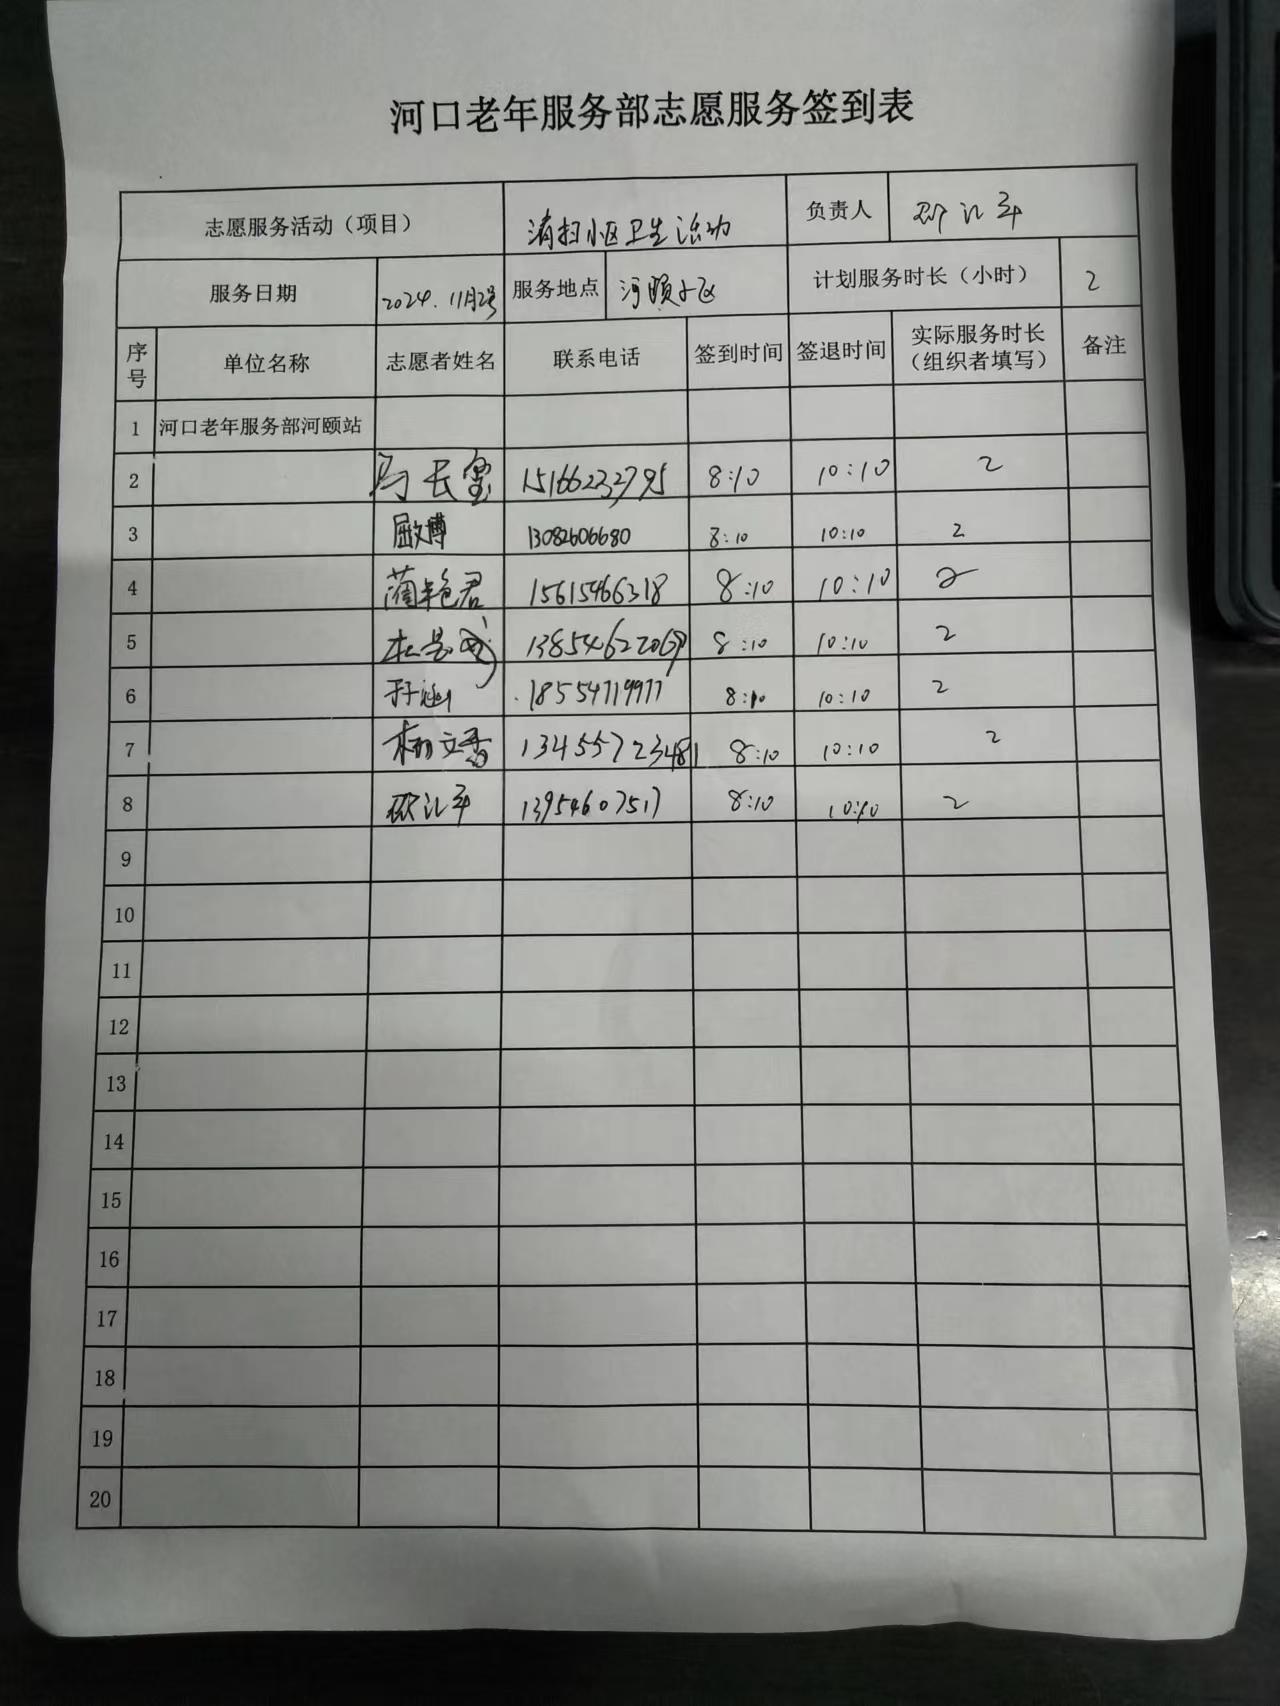 河口老年服务部志愿服务签到表
志愿服务活动（项目） 清扫小区卫生活动 负责人
服务日期 2024.11月2号 服务地点 河颐小区 计划服务时长（小时） 2
序号 单位名称 志愿者姓名 联系电话 签到时间 签退时间 实际服务时长（组织者填写） 备注
1 河口老年服务部河颐站
2 马长玺 15166232795 8:10 10:10 2
3 屈文博 13082606680 8:10 10:10 2
4 蔺艳君 15615466318 8:10 10:10 2
5 8:10 10:10 2
6 孙涵 18554719977 8:10 10:10 2
7 柳文香 13455723481 8:10 10:10 2
8 13954607517 8:10 10:10 2
9
10
11
12
13
14
15
16
17
18
19
20